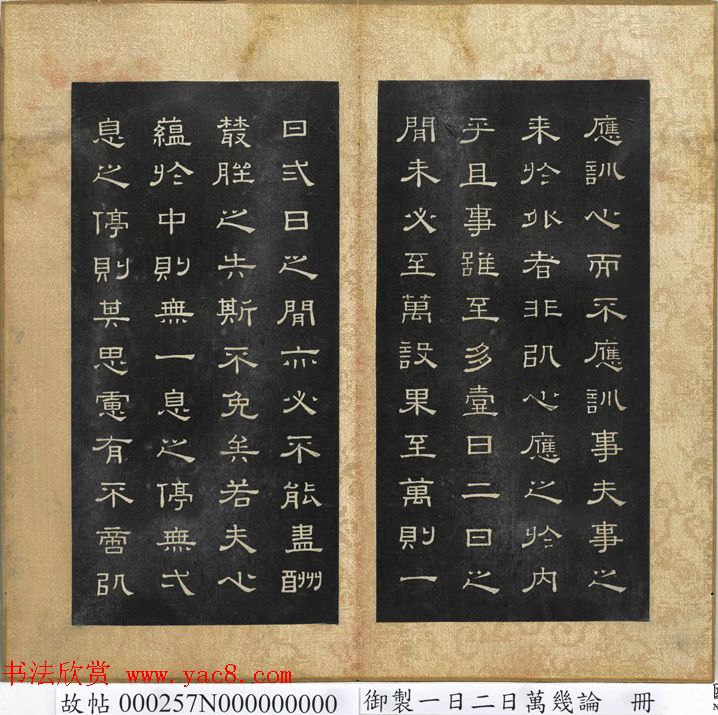 應訓心而不應訓事夫事之
来於外者非以心應之於内
乎且事雖至多壹日二日之
間未必至萬設果至萬則一
日弍日之間亦必不能盡酬
叢脞之失斯不免矣若夫心
蘊於中則無一息之停無弌
息之停則其思慮有不啻以
书法欣赏 www.yac8.com
故帖 000257N000000000
御製一日二日萬幾論 冊